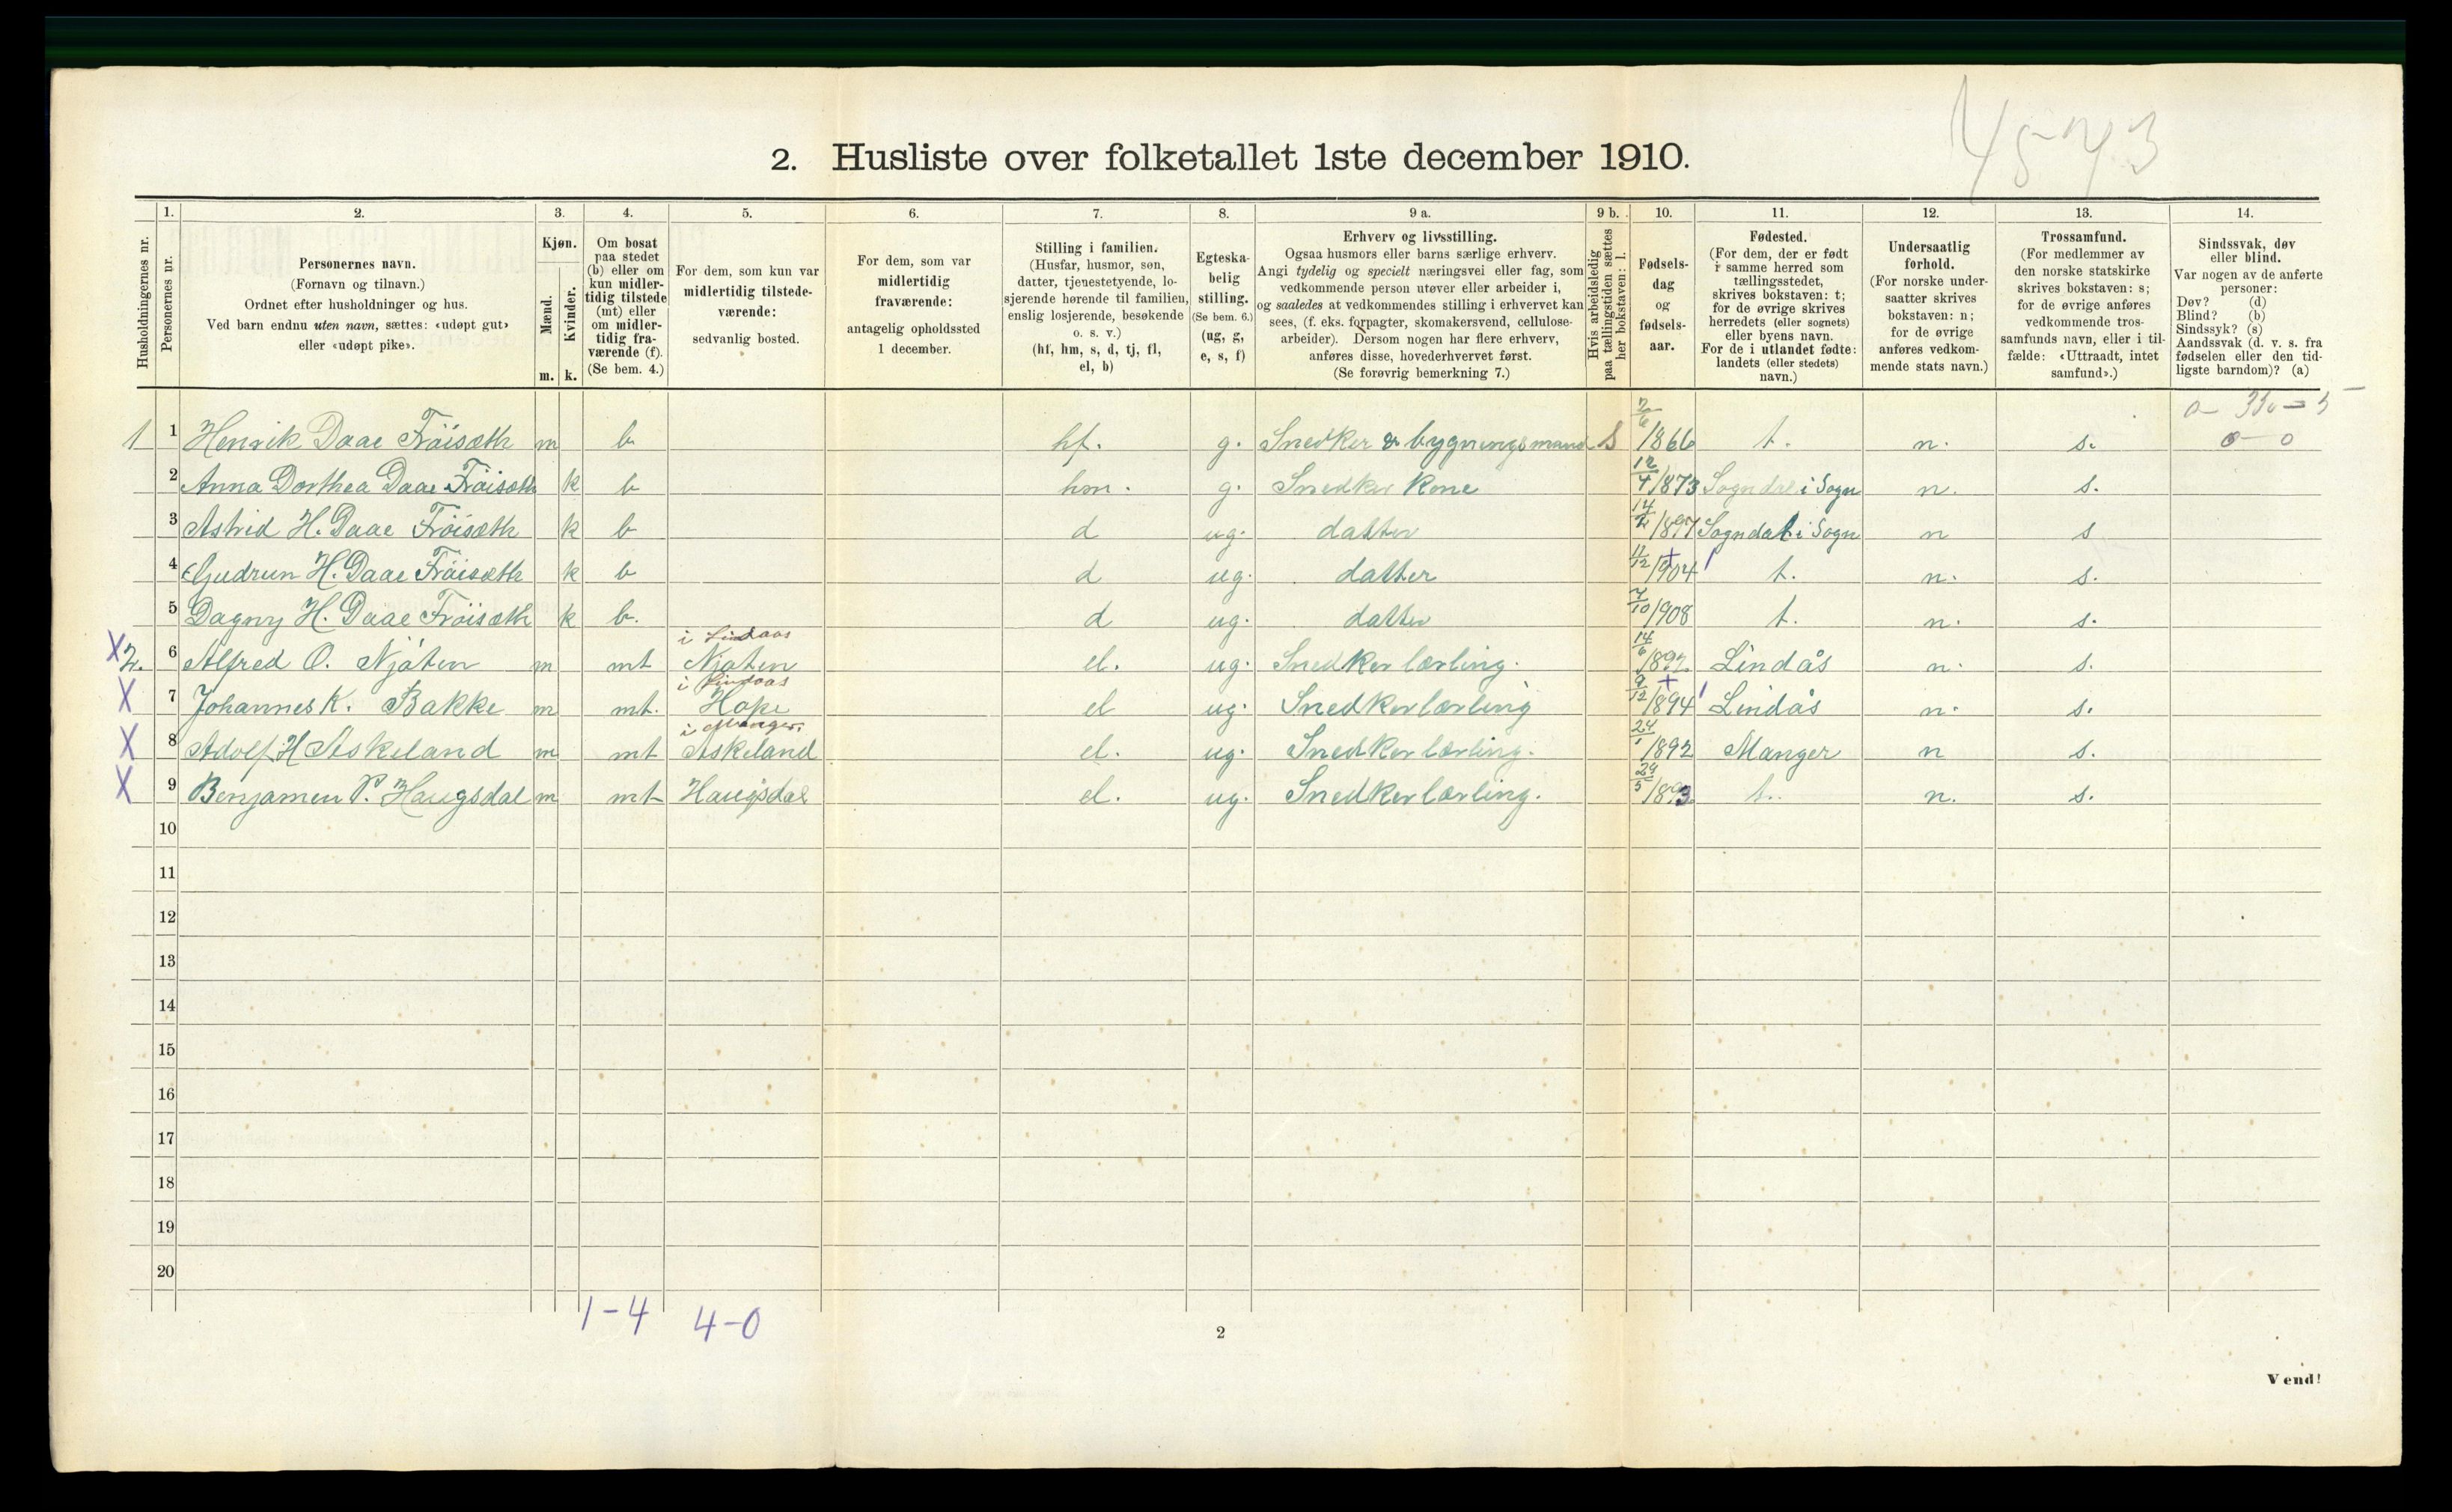 45-73
2. Husliste over folketallet 1ste december 1910.
Husholdningernes nr.
1. Personernes nr.
2. Personernes navn.
(Fornavn og tilnavn.)
Ordnet efter husholdninger og hus.
Ved barn endnu uten navn, sættes: «udøpt gut»
eller «udøpt pike».
3. Kjøn.
Mænd. m.
Kvinder. k.
4. Om bosat
paa stedet
(b) eller om
kun midler-
tidig tilstede
(mt) eller
om midler-
tidig fra-
værende (f).
(Se bem. 4.)
5. For dem, som kun var
midlertidig tilstede-
værende:
sedvanlig bosted.
6. For dem, som var
midlertidig
fraværende:
antagelig opholdssted
1 december.
7. Stilling i familien.
(Husfar, husmor, søn,
datter, tjenestetyende, lo-
sjerende hørende til familien,
enslig losjerende, besøkende
o. s. v.)
(hf, hm, s, d, tj, fl,
el, b)
8. Egteska-
belig
stilling.
(Se bem. 6.)
(ug, g,
e, s, f)
9 a. Erhverv og livsstilling.
Ogsaa husmors eller barns særlige erhverv.
Angi tydelig og specielt næringsvei eller fag, som
vedkommende person utøver eller arbeider i,
og saaledes at vedkommendes stilling i erhvervet kan
sees, (f. eks. forpagter, skomakersvend, cellulose-
arbeider). Dersom nogen har flere erhverv,
anføres disse, hovederhvervet først.
(Se forøvrig bemerkning 7.)
9 b. Hvis arbeidsledig
paa tællingstiden sættes
her bokstaven: l.
10. Fødsels-
dag
og
fødsels-
aar.
11. Fødested.
(For dem, der er født
i samme herred som
tællingsstedet,
skrives bokstaven: t;
for de øvrige skrives
herredets (eller sognets)
eller byens navn.
For de i utlandet fødte:
landets (eller stedets)
navn.)
12. Undersaatlig
forhold.
(For norske under-
saatter skrives
bokstaven: n;
for de øvrige
anføres vedkom-
mende stats navn.)
13. Trossamfund.
(For medlemmer av
den norske statskirke
skrives bokstaven: s;
for de øvrige anføres
vedkommende tros-
samfunds navn, eller i til-
fælde: «Uttraadt, intet
samfund».)
14. Sindssvak, døv
eller blind.
Var nogen av de anførte
personer:
Døv? (d)
Blind? (b)
Sindssyk? (s)
Aandssvak (d. v. s. fra
fødselen eller den tid-
ligste barndom)? (a)
1 1 Henrik Daae Fröisæth m b hf. g. Snedker & bygningsmand S 2/6 1866 t. n. s. 0-0
2 Anna Dorthea Daae Fröisæth k b hm. g. Snedker Kone 12/4 1873 Sogndal i Sogn n. s.
3 Astrid H. Daae Fröisæth k b d ug. datter 14/2 1897 Sogndal i Sogn n s
4 Gudrun H. Daae Fröisæth k b d ug. datter 11/12 1904 t. n. s.
5 Dagny H. Daae Fröisæth k b. d ug. datter 7/10 1908 t. n. s.
X 2. 6 Alfred O. Njåten m mt i Lindaas Njåten el. ug. Snedkerlærling. 14/6 1892 Lindås n. s.
X 7 Johannes K. Bakke m mt. i Lindaas Hope el ug. Snedkerlærling 9/12 1894 Lindås n. s.
X 8 Adolf H Askeland m mt i Manger. Askeland el. ug. Snedkerlærling. 24/1 1892 Manger n s.
X 9 Benjamen P. Haugsdal m mt Haugsdal el. ug. Snedkerlærling. 29/5 1893 t. n. s.
10
11
12
13
14
15
16
17
18
19
20
1-4 4-0
2
Vend!